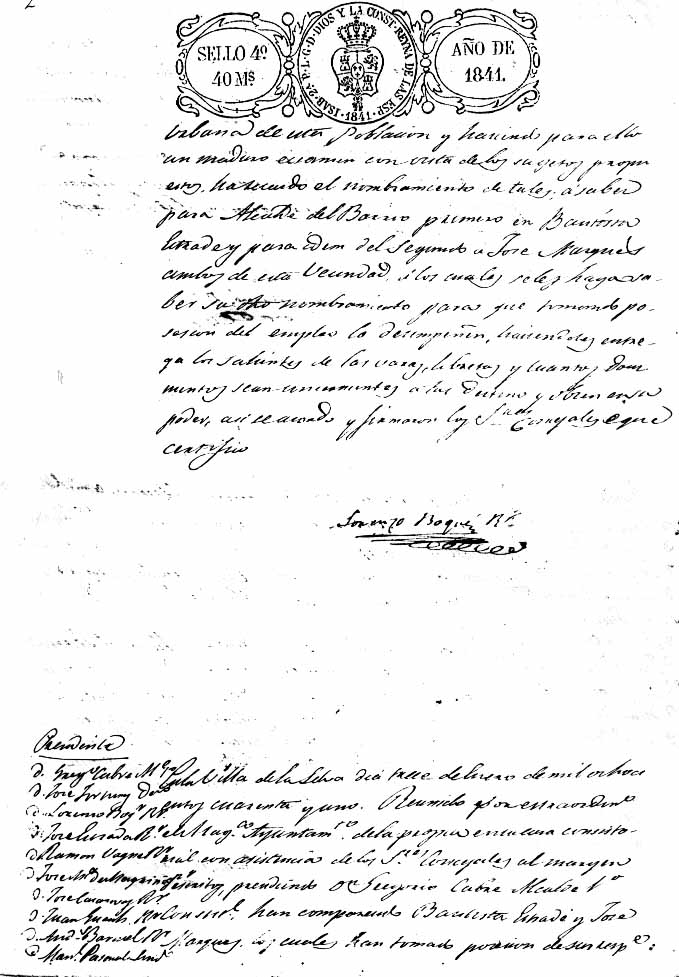 SELLO 4º
40 Mˢ
ISAB. 2ª P. L. G. D. DIOS Y LA CONST. REYNA DE LAS ESP.
1841.
AÑO DE
1841.
Urbana de esta Poblacion y haviendo para ello
un maduro ecsamen con vista de los sugetos propu
estos, ha acordo el nombramiento de tales, á saber
para Alcalde del Barrio primero en Bautista
Estrade y para idem del Segundo a Jose Marques
ambos de esta Vecindad, á los cuales seles haga sa-
ber su nombramiento para que tomando po-
sesion del empleo lo desempeñen, haciendoles entre-
ga los salientes de las varas, libretas y cuantos docu
mentos sean a las y obren en su
poder, asi se acordo y firmaron los S.ʳᵉˢ Concejales de que
certifico
Lorenzo Boqué Rʳ.
Presidente
D. Gregº Cabré
D. Jose Fortuny
D. Lorenzo Boqᵉ Rʳ.
D. Jose Estrada Rʳ.
D. Ramon Rʳ.
D. Jose
D. Jose Rʳ.
D. Juan Rʳ.
D. Andˢ Rʳ.
D. Manˡ Pascual Sindº
En la Villa de la Selva dia trece de Enero de mil ocho ci
entos cuarenta y uno. Reunido por extraordinº
el Magº Ayuntamᵗº de la propia en la casa consisto-
rial con asistencia de los S.ʳᵉˢ Concejales al margen
presidiendo Dⁿ Gregorio Cabré Alcalde 1º
Constˡ. han comparecido Bautista Estradé y Jose
Marques los cuales han tomado posesion de su resp.ᵉ